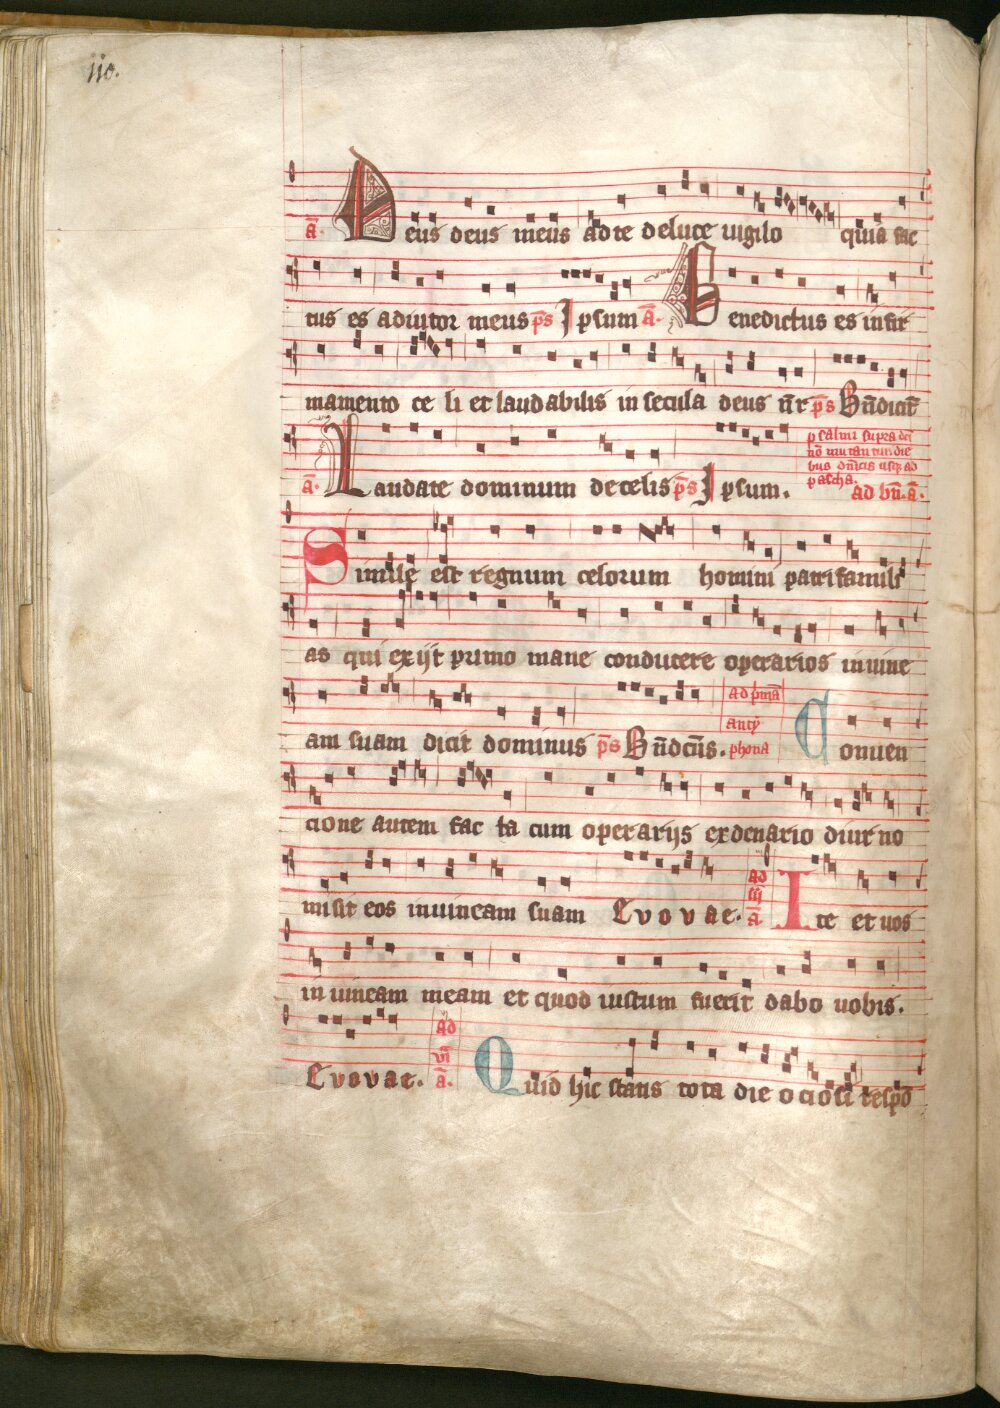 iic.
a. Deus deus meus ad te de luce uigilo quia fac
tus es adiutor meus ps Ipsum a. Benedictus es in fir
mamento celi et laudabilis in secula deus nr ps Bndicit
psalmi supra dci
no mutantur. die
bus dnicis usq ad
pascha.
a. Laudate dominum de celis ps Ipsum. ad bn. a.
Simile est regnum celorum homini patrifamili
as qui exijt primo mane conducere operarios in uine
am suam dicit dominus ps Bndcus. Ad pma anty phona Conuen
cione autem facta cum operarijs ex denario diurno
misit eos in uineam suam Euouae. ad iij a. Ite et uos
in uineam meam et quod iustum fuerit dabo uobis.
Euouae. ad vi a. Quid hic statis tota die ociosi respo